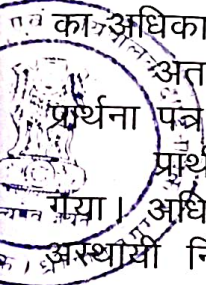 का अधिका
अत
प्रार्थना पत्र
प्रार्थ
गया। अधि
अस्थायी नि